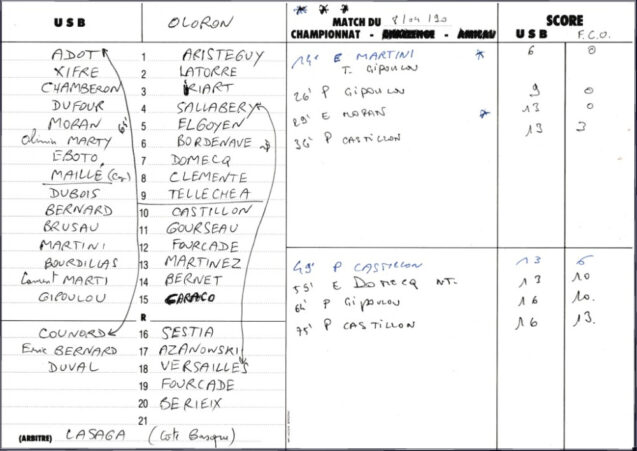 USB OLORON
ADOT 1 ARISTEGUY
XIFRE 2 LATORRE
CHAMBERON 3 IRIART
DUFOUR 4 SALLABERY
MORAN 5 ELGOYEN
MARTY 6 BORDENAVE
EBOTO 7 DOMECQ
MAILLÉ (Cap) 8 CLEMENTE
DUBOIS 9 TELLECHEA
BERNARD 10 CASTILLON
BRUSAU 11 GOURSEAU
MARTINI 12 FOURCADE
BOURDILLAS 13 MARTINEZ
Laurent MARTI 14 BERNET
GIPOULOU 15 CARACO
R
COUNORD 16 SESTIA
Eric BERNARD 17 AZANOWSKI
DUVAL 18 VERSAILLES
19 FOURCADE
20 BERIEIX
21
(ARBITRE) CASAGA (Cote Basque)
* * *
MATCH DU 8/04/90 SCORE
CHAMPIONNAT - CHALLENGE - AMICAL USB F.C.O.
14' E MARTINI * 6 0
T. GIPOULOU
26' P GIPOULOU 9 0
29' E MORAN * 13 0
36' P CASTILLON 13 3
49' P CASTILLON 13 6
55' E DOMECQ NT. 13 10
64' P GIPOULOU 16 10.
75' P CASTILLON 16 13.